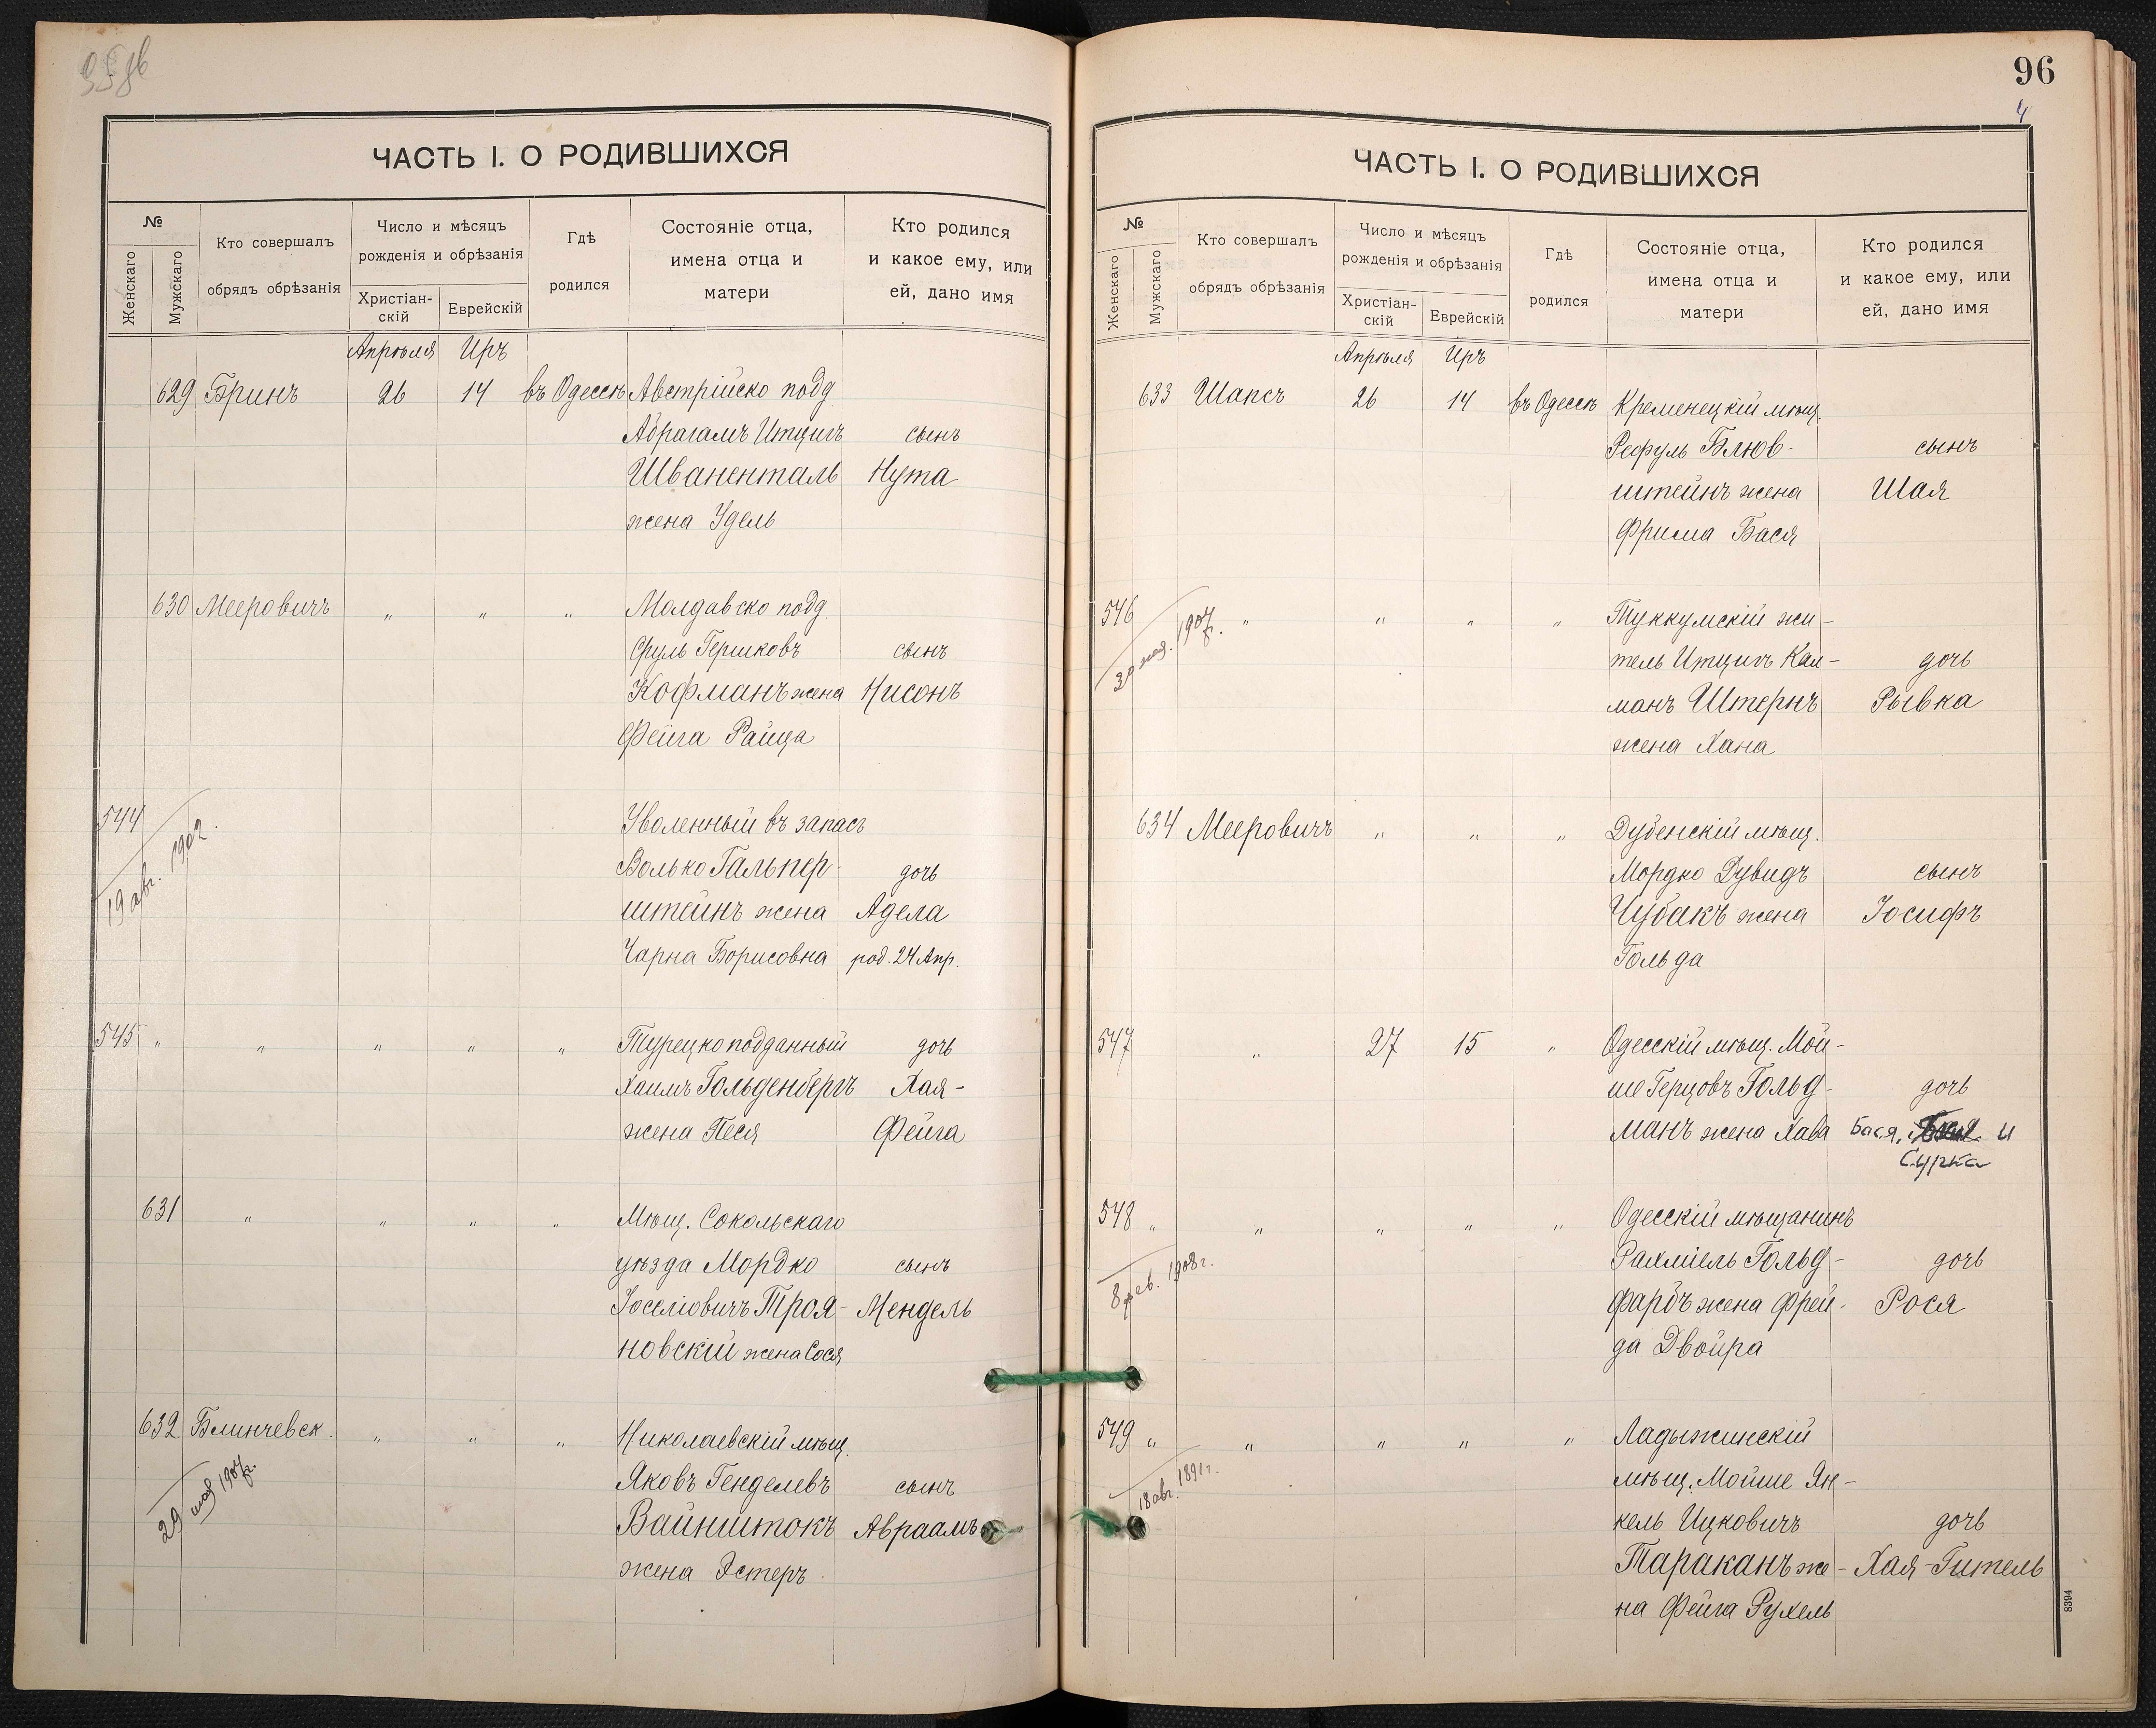 ЧАСТЬ I. О РОДИВШИХСЯ
№
Женскаго
Мужскаго
Кто совершалъ
обрядъ обрѣзанія
Число и мѣсяцъ
рожденія и обрѣзанія
Христіан-
скій
Еврейскій
Гдѣ
родился
Состояніе отца,
имена отца и
матери
Кто родился
и какое ему, или
ей, дано имя
Апрѣля Иръ
629 Бринъ 26 14 въ Одессѣ Австрійско подд
Абрагамъ Итцигъ сынъ
Шваненталь Нута
жена Удель
630 Мееровичъ " " " Молдавско подд
Сруль Гершковъ сынъ
Кофманъ жена Нисонъ
Фейга Райца
544 Уволенный въ запасъ
19 авг. 1902.
Волько Гальпер- дочь
штейнъ жена Адела
Чарна Борисовна род. 24 Апр.
545 " " " " " Турецкоподданный дочь
Хаимъ Гольденбергъ Хая-
жена Песя Фейга
631 " " " " Мѣщ. Сокольскаго
уѣзда Мордко сынъ
Іоселіовичъ Троя- Мендель
новскій жена Сося
632 Блинчевск. " " " Николаевскій мѣщ.
29 мая 1907г.
Яковъ Генделевъ сынъ
Вайнштокъ Авраамъ
жена Эстеръ
96
4
ЧАСТЬ I. О РОДИВШИХСЯ
№
Женскаго
Мужскаго
Кто совершалъ
обрядъ обрѣзанія
Число и мѣсяцъ
рожденія и обрѣзанія
Христіан-
скій
Еврейскій
Гдѣ
родился
Состояніе отца,
имена отца и
матери
Кто родился
и какое ему, или
ей, дано имя
Апрѣля Иръ
633 Шапсъ 26 14 въ Одессѣ Кременецкій мѣщ.
Рефуль Блюв- сынъ
штейнъ жена Шая
Фрима Бася
546 " " " " Туккумскій жи-
30 мая. 1907г.
тель Итцигъ Кал- дочь
манъ Штернъ Рывка
жена Хана
634 Мееровичъ " " " Дубенскій мѣщ.
Мордко Дувидъ сынъ
Чубакъ жена Іосифъ
Гольда
547 " 27 15 " Одесскій мѣщ. Мой-
ше Герцовъ Гольд- дочь
манъ жена Хава Бася, и
Сурка
548 " " " " " Одесскій мѣщанинъ
8 фев. 1908г.
Рахміель Гольд- дочь
фарбъ жена Фрей- Рося
да Двойра
549 " " " " " Ладыжинскій
18 авг. 1891г.
мѣщ. Мойше Ян-
кель Ицковичъ дочь
Тараканъ же- Хая-Гитель
на Фейга Рухель
8394